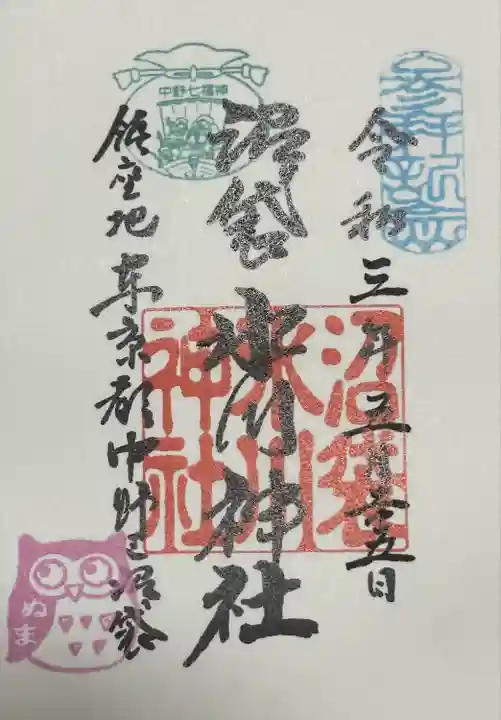 参拝記念
令和三年五月
沼袋氷川神社
沼袋
氷川
神社
中野七福神
鎮座地東京都中野区沼袋
ぬま